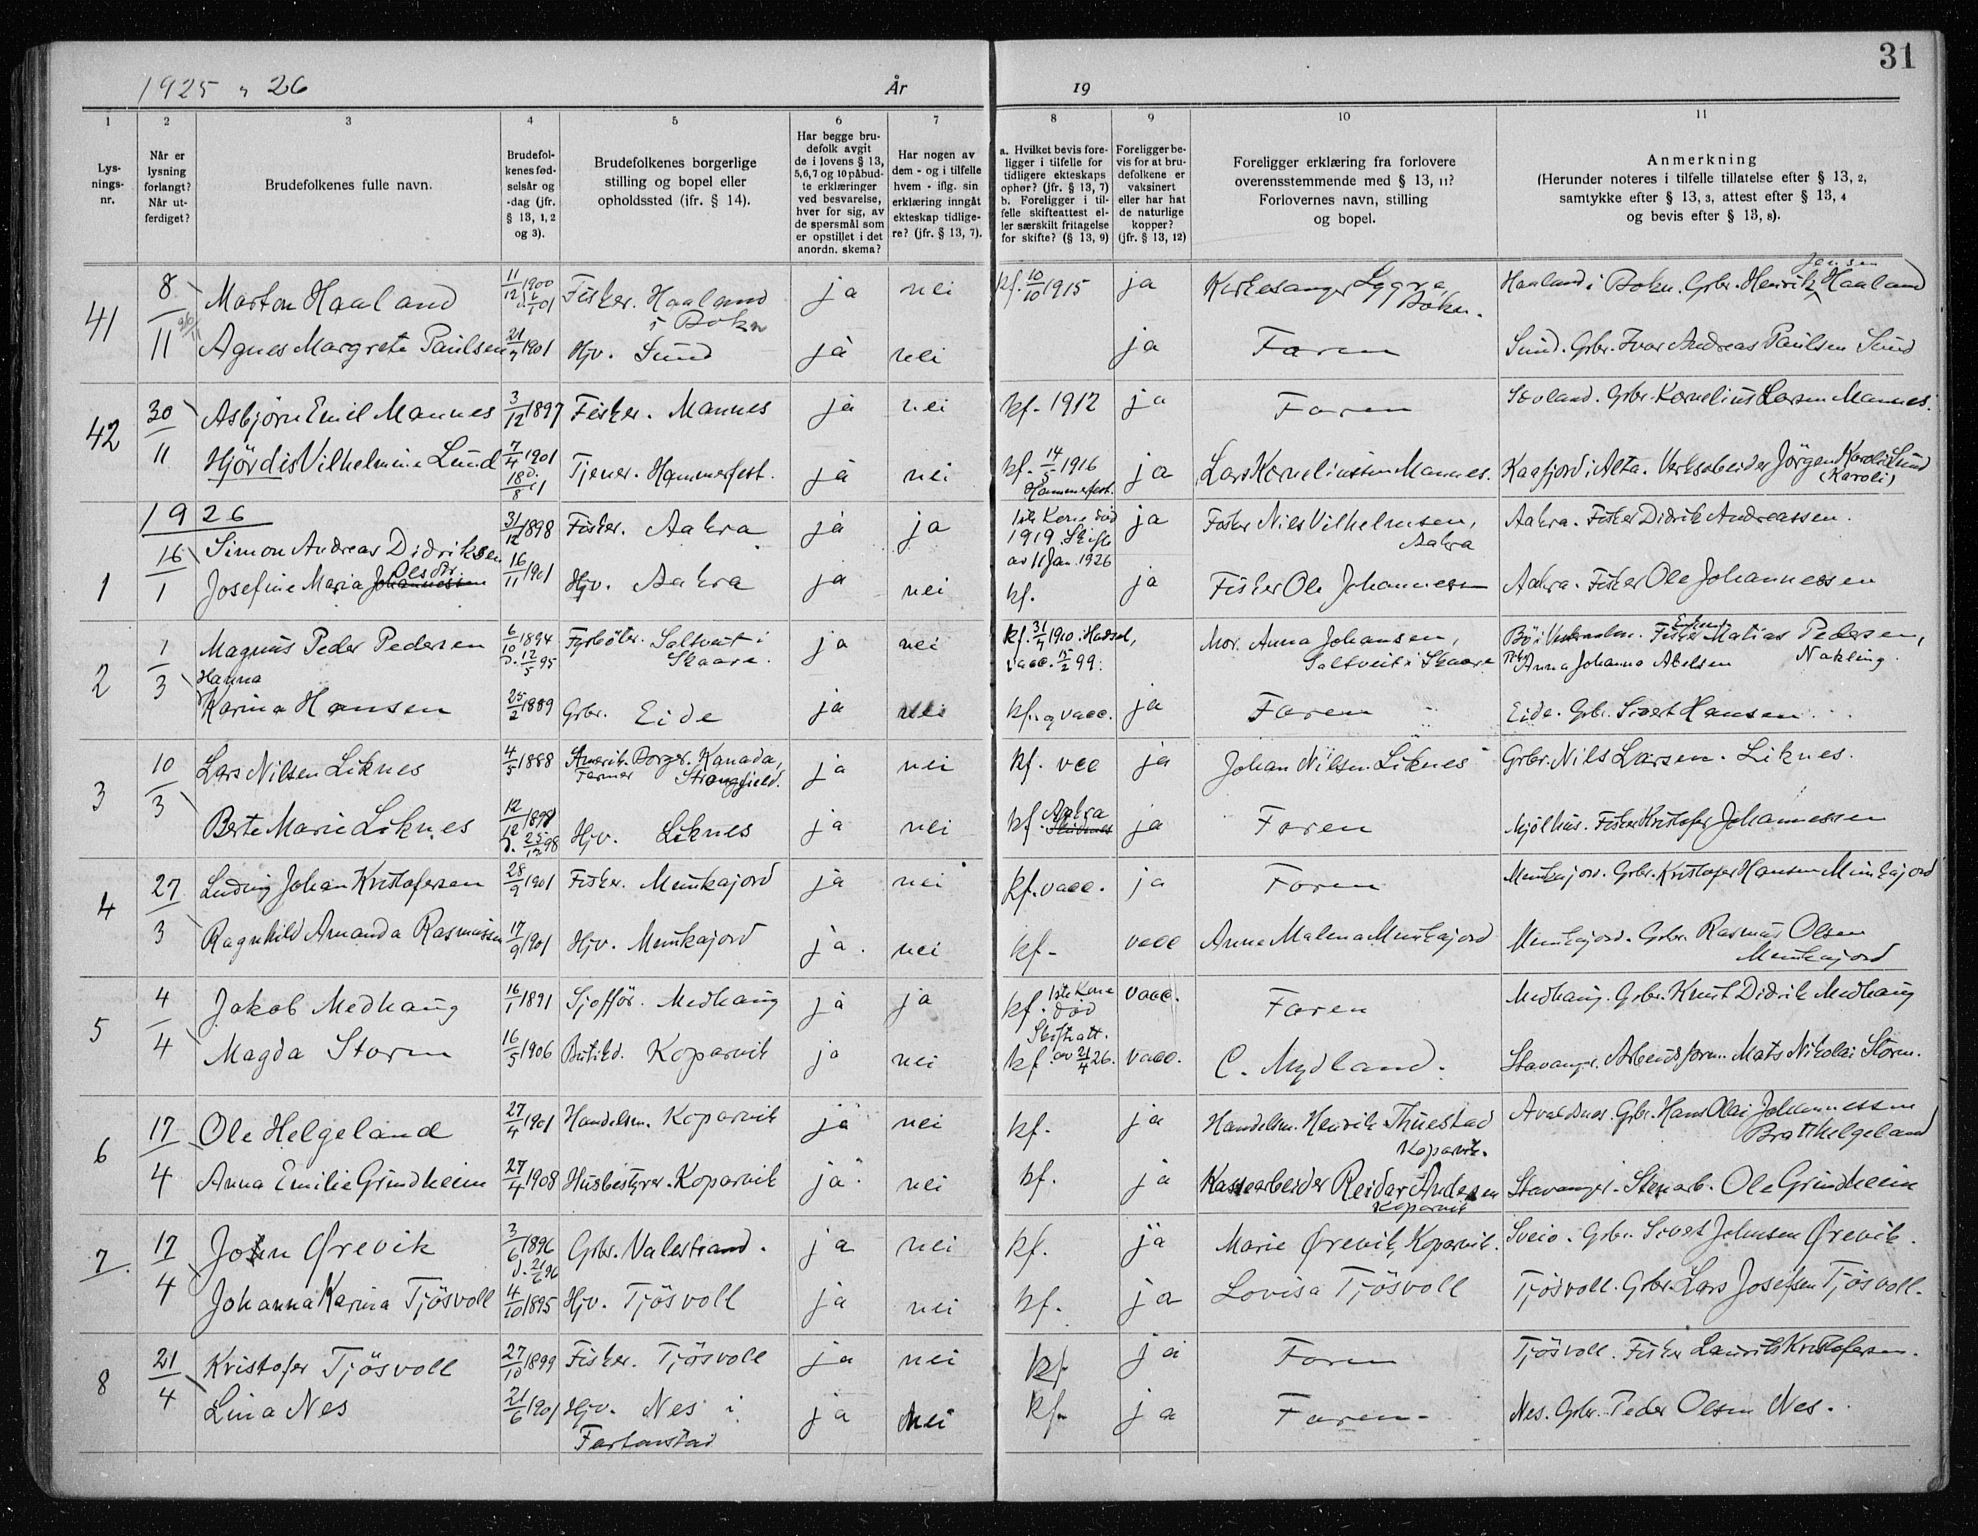 31
1925 " 26
År
19
1 2 3 4 5 6 7 8 9 10 11
Lysningsnr.
Når er lysning forlangt? Når utferdiget?
Brudefolkenes fulle navn.
Brudefolkenes fødselsår og -dag (jfr. § 13, 1, 2 og 3).
Brudefolkenes borgerlige stilling og bopel eller opholdssted (ifr. § 14).
Har begge brudefolk avgit de i lovens § 13, 5, 6, 7 og 10 påbudte erklæringer ved besvarelse, hver for sig, av de spørsmål som er opstillet i det anordn. skema?
Har nogen av dem - og i tilfelle hvem - iflg. sin erklæring inngåt ekteskap tidligere? (jfr. § 13, 7).
a. Hvilket bevis foreligger i tilfelle for tidligere ekteskaps ophør? (jfr. § 13, 7) b. Foreligger i tilfelle skifteattest eller særskilt fritagelse for skifte? (§ 13, 9)
Foreligger bevis for at brudefolkene er vaksinert eller har hat de naturlige kopper? (jfr. § 13, 12)
Foreligger erklæring fra forlovere overensstemmende med § 13, 11? Forlovernes navn, stilling og bopel.
Anmerkning
(Herunder noteres i tilfelle tillatelse efter § 13, 2, samtykke efter § 13, 3, attest efter § 13, 4 og bevis efter § 13, 8).
41 8/11 Marton Haaland 11/12 1900 Fisker. Haaland i Bokn ja nei kf. 10/10 1915 ja Kirkesanger Bokn. Haaland i Bokn. Grbr. Henrik Jensen Haaland
Agnes Margrete Paulsen 21/7 1901 Hjv. Sund ja nei ja Faren Sund. Grbr. Ivar Andreas Paulsen Sund
42 30/11 Asbjørn Emil Mannes 3/12 1897 Fisker. Mannes ja nei kf. 1912 ja Faren Grbr. Kornelius Larsen Mannes.
Hjördis Vilhelmine Lund 7/4 1901 Tjener. Hammerfest. ja nei kf. 14/5 1916 Hammerfest. ja Lars Korneliussen Mannes. Kaafjord i Alta. Verksarbeider Jörgen Karoli Lund (Karoli)
1926
1 16/1 Simon Andreas Didriksen 31/12 1898 Fisker. Aakra ja ja 1ste Kone död 1919. Skifte av 11 Jan. 1926 ja Fisker Nils Vilhelmsen, Aakra Aakra. Fisker Didrik Andreassen.
Josefine Maria Johannessen Olsdtr. 16/11 1901 Hjv. Aakra ja nei kf. ja Fisker Ole Johannesen Aakra. Fisker Ole Johannessen
2 1/3 Magnus Peder Pedersen 6/10 1894 d. 12/5 95 Fyrböter. Saltveit i Skaare. ja nei kf. 31/7 1910 i Hadsel, vacc. 15/2 99. Mor. Anna Johansen, Saltveit i Skaare Fisker Matias Pedersen, Anna Johanna Abelsen
Hanna Karina Hansen 25/2 1889 Grbr. Eide ja nei kf. og vacc. ja Faren Eide. Grbr. Sivert Hansen.
3 10/3 Lars Nilsen Liknes 4/5 1888 Amerik. Borger. Kanada, Farmer Strongfield. ja nei kf. vcc ja Johan Nilsen Liknes Grbr. Nils Larsen. Liknes.
Berte Marie Liknes 12/12 1898 d. 25/12 98 Hjv. Liknes ja nei kf. Aakra ja Faren Mjölhus. Fisker Kristofer Johannessen
4 27/3 Ludvig Johan Kristofersen 28/9 1901 Fisker. Munkajord ja nei kf. vacc. ja Faren Munkajord. Grbr. Kristofer Hansen Munkajord
Ragnhild Amanda Rasmussen 17/9 1901 Hjv. Munkajord ja. nei kf. vacc Anne Malena Munkajord Munkajord. Grbr. Rasmus Olsen Munkajord
5 4/4 Jakob Medhaug 16/1 1891 Sjofför. Medhaug ja ja kf. 1ste Kone död vacc. Faren Medhaug. Grbr. Knut Didrik Medhaug
Magda Storm 16/5 1906 Butikd. Kopervik ja nei Skifteatt. kf. av 21/4 26. vacc. C. Mydland. Stavanger. Arbeidsform. Mats Nikolai Storm.
6 17/4 Ole Helgeland 27/4 1901 Handelsm. Kopervik ja nei kf. ja Handelsm. Henrik Thuestad Kopervik. Avaldsnes. Grbr. Hans Olai Johannessen Bratthelgeland
Anna Emilie Grindheim 27/4 1908 Husbestyrer. Kopervik ja nei kf. ja Kassearbeider Reidar Andersen Kopervik Stavanger. Stenarb. Ole Grindheim
7. 17/4 John Ørevik 3/6 1896 d. 21/6 96 Grbr. Valestrand. ja nei kf. ja Marie Ørevik, Kopervik. Sveio. Grbr. Sivert Johnsen Ørevik.
Johanna Karina Tjösvoll 4/10 1895 Hjv. Tjösvoll ja nei kf. ja Lovisa Tjösvoll Tjösvoll. Grbr. Lars Josefsen Tjösvoll.
8 21/4 Kristofer Tjösvoll 27/10 1899 Fisker. Tjösvoll ja nei kf. ja Faren Tjösvoll. Fisker Laurits Kristofersen.
Lina Nes 21/6 1901 Hjv. Nes i ja nei kf. ja Faren. Nes. Grbr. Peder Olsen Nes.